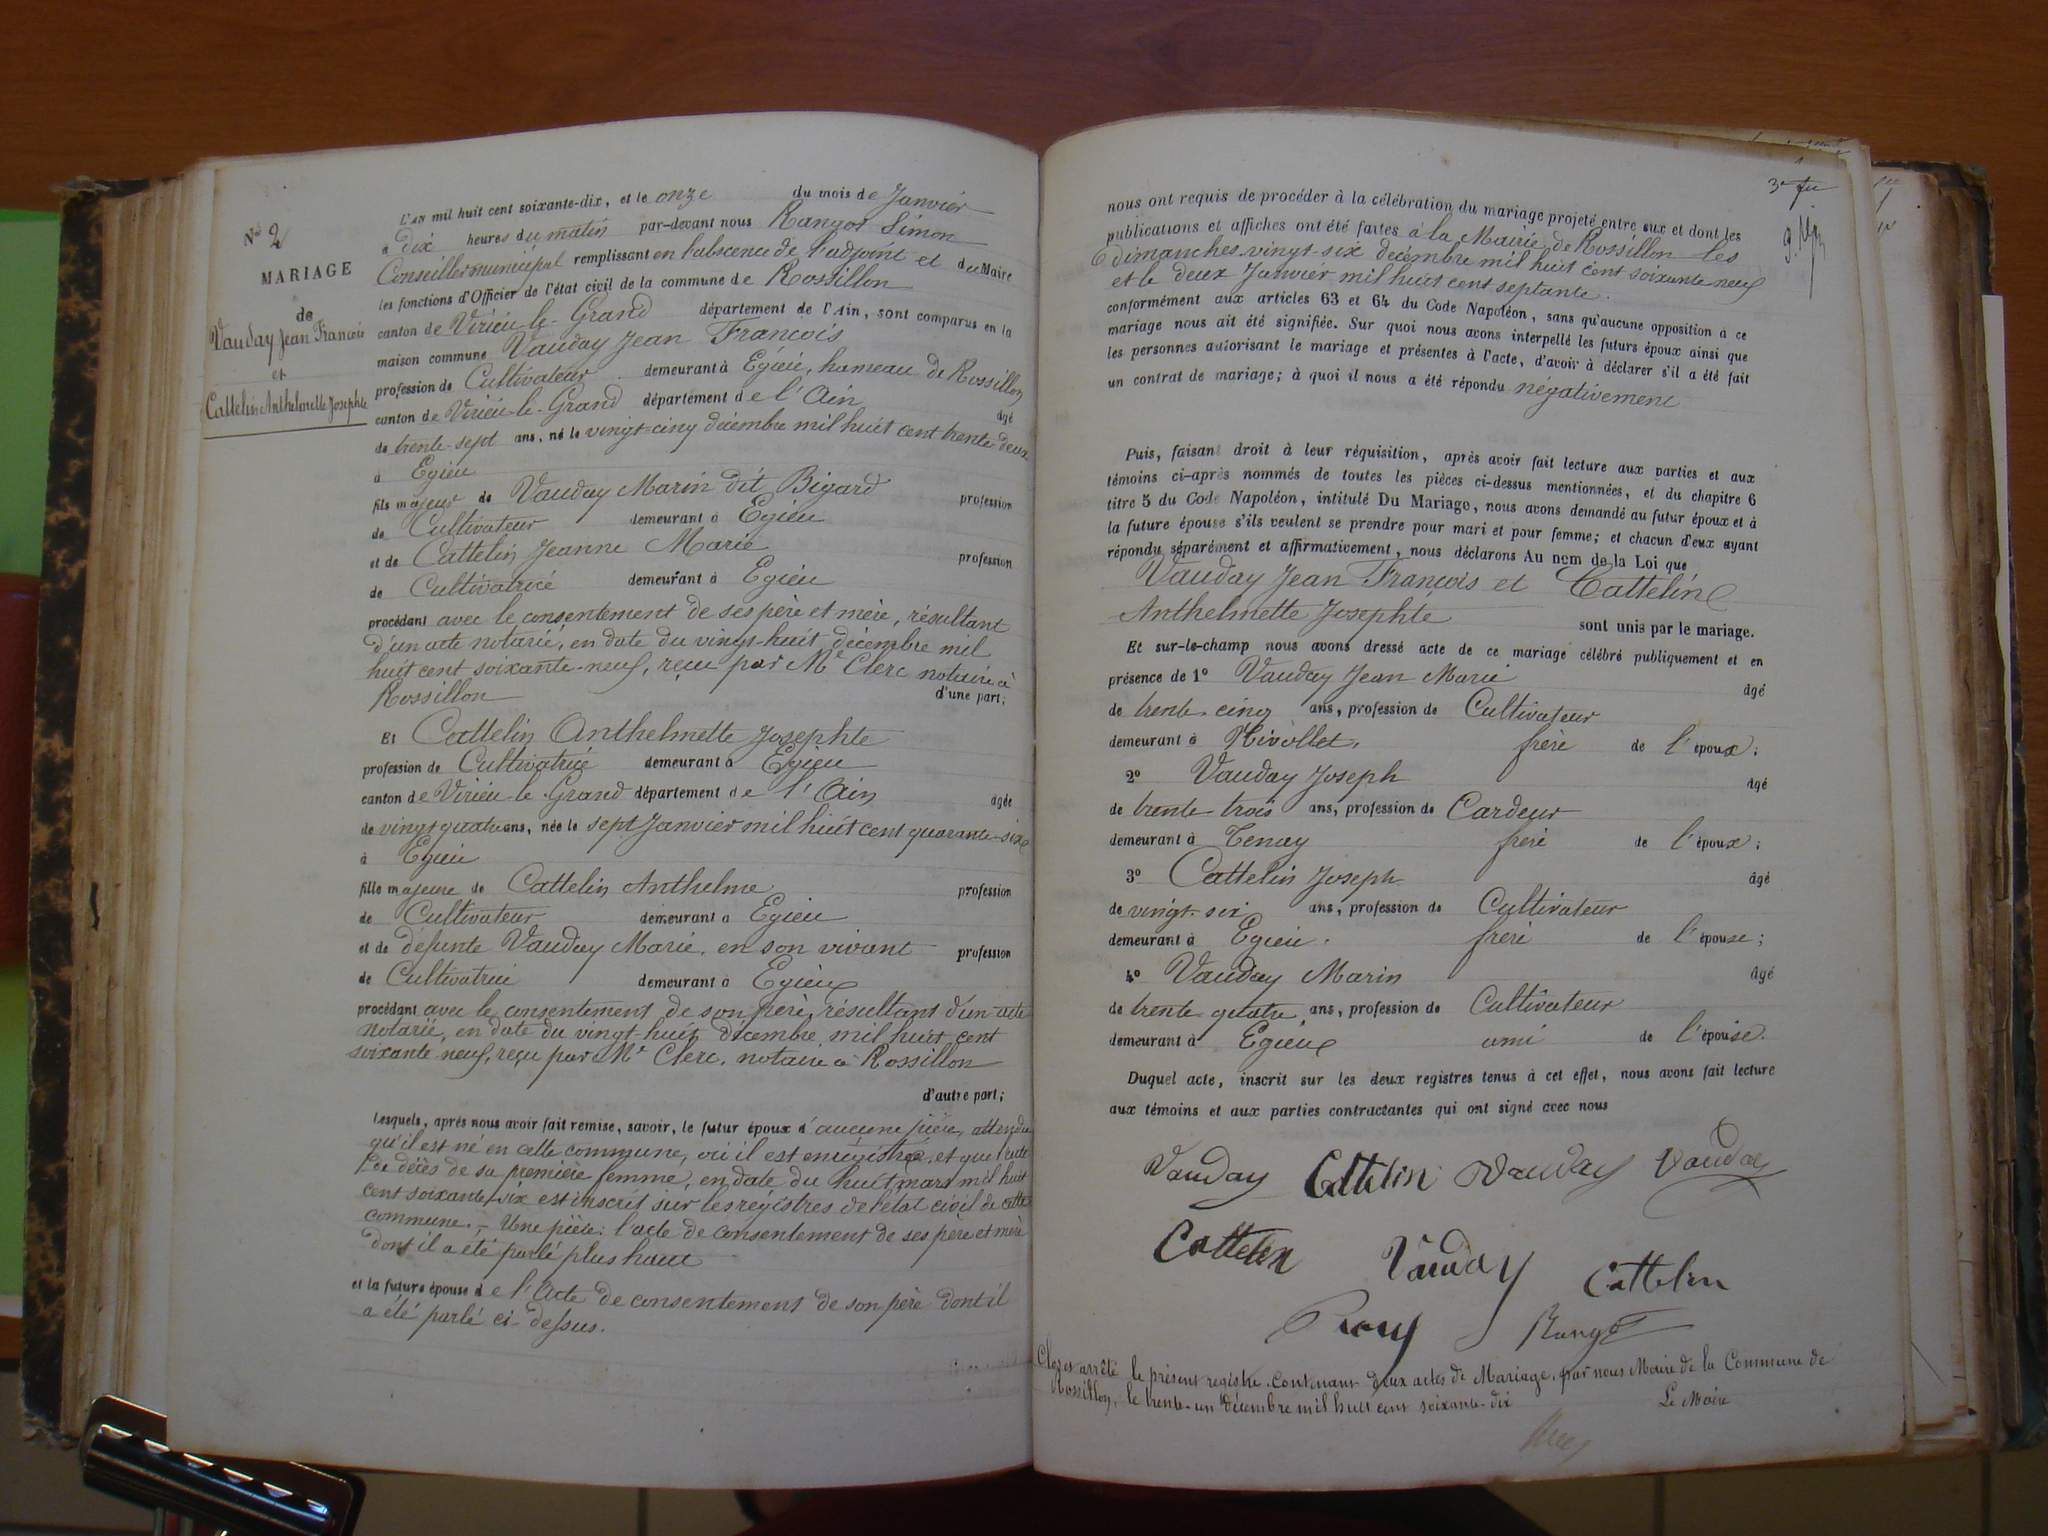 No 2
MARIAGE
de
Vauday Jean François
et
Cattelin Anthelmette Josephte
L'AN mil huit cent soixante-dix, et le onze du mois de Janvier
à dix heures du matin par-devant nous Simon
Conseiller municipal remplissant en l'abscence de l'adjoint et du Maire
les fonctions d'Officier de l'état civil de la commune de Rossillon
canton de Virieu-le-Grand département de l'Ain, sont comparus en la
maison commune Vauday Jean François
profession de Cultivateur demeurant à Egieu, hameau de Rossillon
canton de Virieu-le-Grand département de l'Ain âgé
de trente-sept ans, né le vingt-cinq décembre mil huit cent trente deux
à Egieu
fils majeur de Vauday Marin dit Bigard profession
de Cultivateur demeurant à Egieu
et de Cattelin Jeanne Marie profession
de Cultivatrice demeurant à Egieu
procédant avec le consentement de ses père et mère, résultant
d'un acte notarié, en date du vingt-huit décembre mil
huit cent soixante-neuf, reçu par Me Clerc notaire à
Rossillon d'une part;
Et Cattelin Anthelmette Josephte
profession de Cultivatrice demeurant à Egieu
canton de Virieu-le-Grand département de l'Ain âgée
de vingt quatre ans, née le sept Janvier mil huit cent quarante-six
à Egieu
fille majeure de Cattelin Anthelme profession
de Cultivateur demeurant à Egieu
et de défunte Vauday Marie, en son vivant profession
de Cultivatrice demeurant à Egieu
procédant avec le consentement de son père, résultant d'un acte
notarié, en date du vingt-huit décembre mil huit cent
soixante neuf, reçu par Me Clerc, notaire à Rossillon
d'autre part;
Lesquels, après nous avoir fait remise, savoir, le futur époux d'aucune pièce, attendu
qu'il est né en cette commune, où il est enrégistré, et que l'acte
de décès de sa première femme, en date du huit mars mil huit
cent soixante-six est inscrit sur les régistres de l'état civil de cette
commune. - Une pièce: l'acte de consentement de ses père et mère
dont il a été parlé plus haut
et la future épouse de l'Acte de consentement de son père dont il
a été parlé ci-dessus.
nous ont requis de procéder à la célébration du mariage projeté entre eux et dont les
publications et affiches ont été faites à la Mairie de Rossillon les
dimanches vingt-six décembre mil huit cent soixante neuf
et le deux Janvier mil huit cent septante.
conformément aux articles 63 et 64 du Code Napoléon, sans qu'aucune opposition à ce
mariage nous ait été signifiée. Sur quoi nous avons interpellé les futurs époux ainsi que
les personnes autorisant le mariage et présentes à l'acte, d'avoir à déclarer s'il a été fait
un contrat de mariage; à quoi il nous a été répondu négativement
Puis, faisant droit à leur réquisition, après avoir fait lecture aux parties et aux
témoins ci-après nommés de toutes les pièces ci-dessus mentionnées, et du chapitre 6
titre 5 du Code Napoléon, intitulé Du Mariage, nous avons demandé au futur époux et à
la future épouse s'ils veulent se prendre pour mari et pour femme; et chacun d'eux ayant
répondu séparément et affirmativement, nous déclarons Au nom de la Loi que
Vauday Jean François et Cattelin
Anthelmette Josephte sont unis par le mariage.
Et sur-le-champ nous avons dressé acte de ce mariage célébré publiquement et en
présence de 1° Vauday Jean Marie âgé
de trente-cinq ans, profession de Cultivateur
demeurant à Nivollet, frère de l'époux;
2° Vauday Joseph âgé
de trente trois ans, profession de Cardeur
demeurant à Tenay frère de l'époux;
3° Cattelin Joseph âgé
de vingt-six ans, profession de Cultivateur
demeurant à Egieu. frère de l'épouse;
4° Vauday Marin âgé
de trente quatre ans, profession de Cultivateur
demeurant à Egieu ami de l'épouse.
Duquel acte, inscrit sur les deux registres tenus à cet effet, nous avons fait lecture
aux témoins et aux parties contractantes qui ont signé avec nous
Vauday Cattelin Vauday Vauday
Cattelin Vauday Cattelin
Clos et arrêté le présent registre contenant deux actes de Mariage, par nous Maire de la Commune de
Rossillon, le trente-un décembre mil huit cent soixante-dix
Le Maire